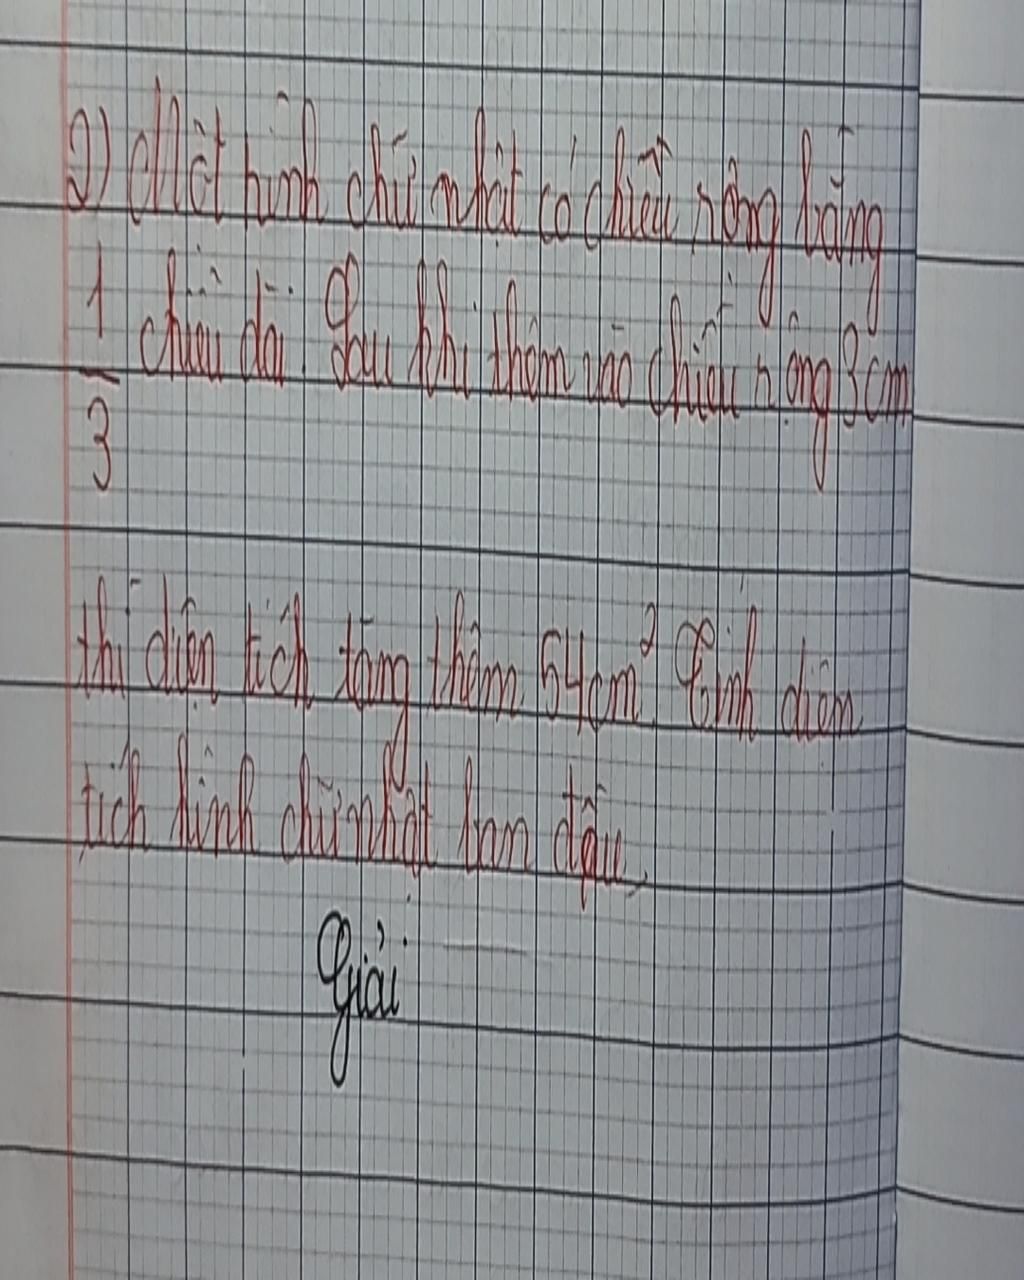 2) Một hình chữ nhật có chiều rộng bằng
1/3 chiều dài. Sau khi thêm vào chiều rộng 3cm
thì diện tích tăng thêm 54cm². Tính diện
tích hình chữ nhật ban đầu.
Giải